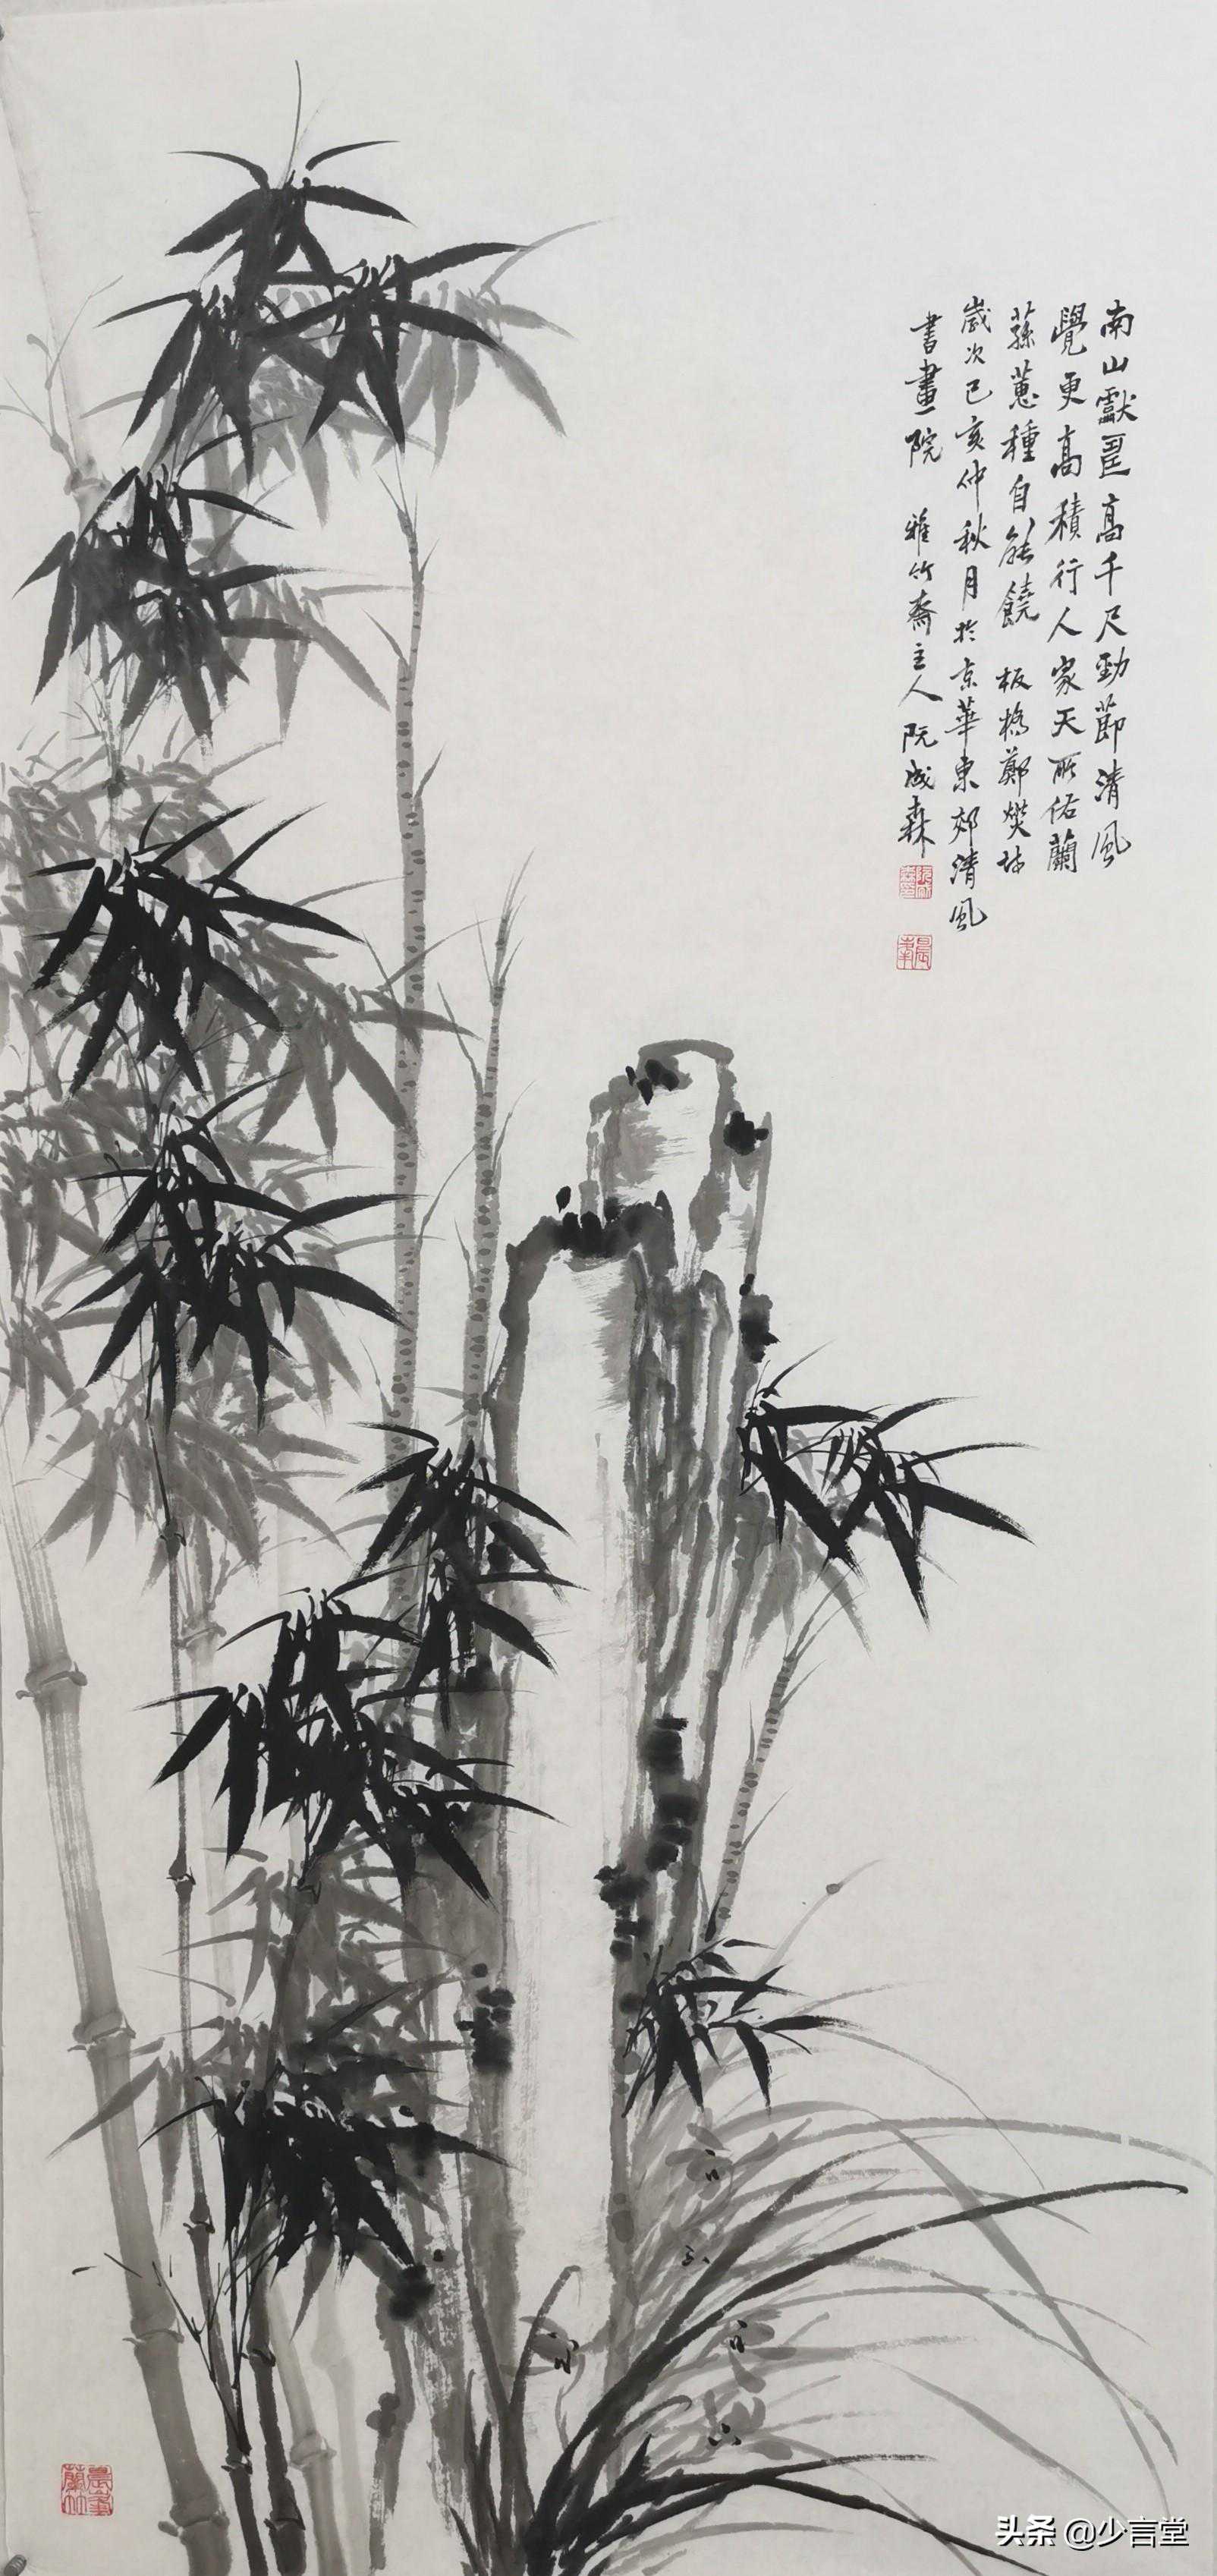 南山獻壽高千尺勁節清風
覺更高積行人家天所佑蘭
蓀蕙種自能饒 板橋鄭燮句
歲次己亥仲秋月於京華東郊清風
書畫院 雅竹齋主人阮成森
头条 @少言堂